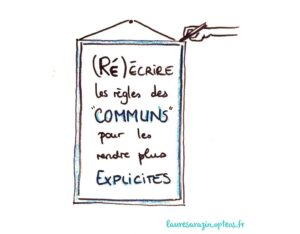 (RÉ)ÉCRIRE
les règles des
"COMMUNS"
pour les
rendre plus
EXPLICITES
lauresarazin.opteos.fr